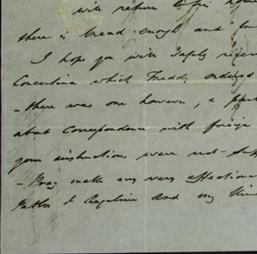 will return to his home
there is bread enough and to
I hope you will safely receive
Concertina which Freddy ordered
- there was one however, a
about correspondence with foreign
your instructions were not
- Pray make my very affectionate
to Angelina and my